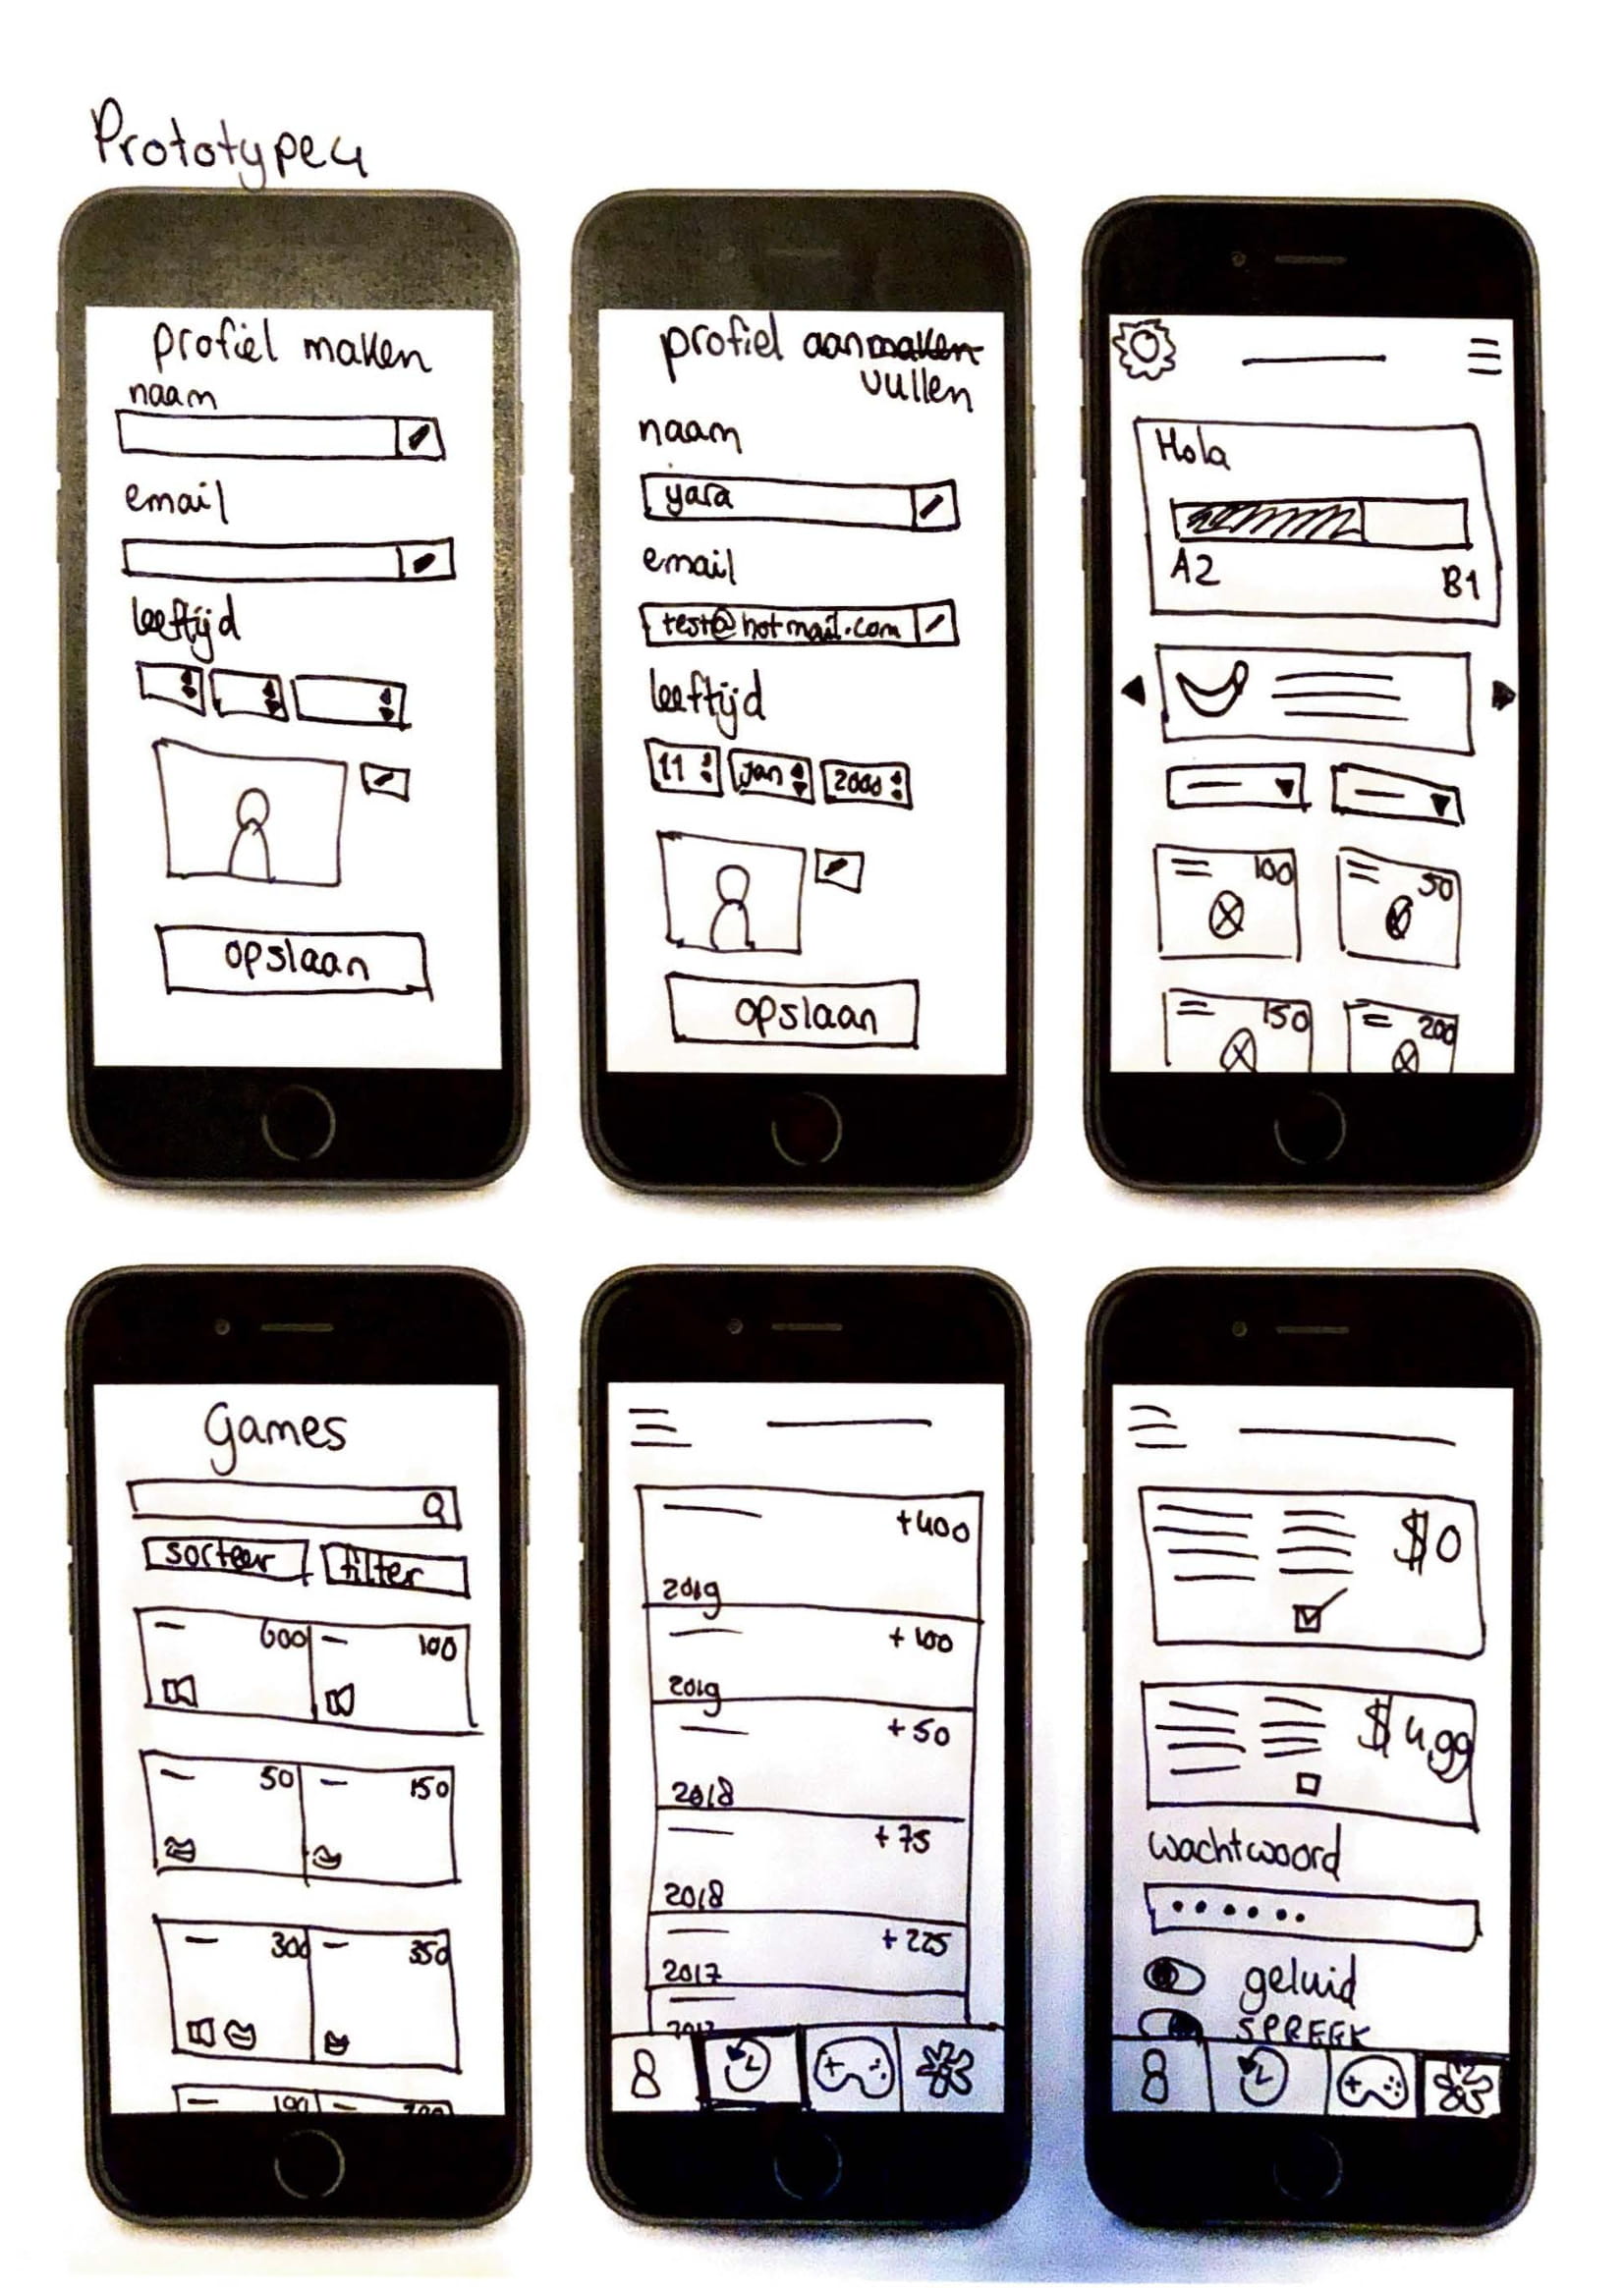 Prototype 4
profiel maken
naam
email
leeftijd
opslaan
profiel aanmaken
vullen
naam
yara
email
test@hotmail.com
leeftijd
11 jan 2000
opslaan
Hola
A2 B1
100 50
150 200
Games
sorteer filter
600 100
50 150
300 350
100
+400
2019
+100
2019
+50
2018
+75
2018
+225
2017
$0
$4,99
wachtwoord
geluid
SPREEK